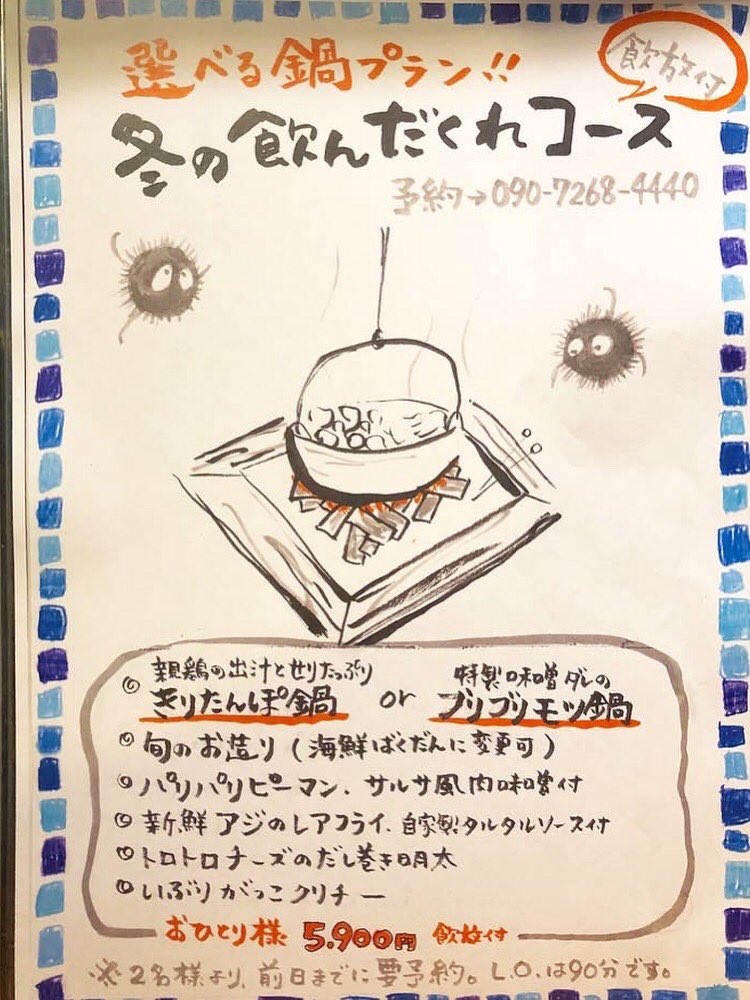 選べる鍋プラン!!
飲放付
冬の飲んだくれコース
予約→090-7268-4440
◎ 親鶏の出汁とせりたっぷり
きりたんぽ鍋 or 特製味噌ダレの
ブリゴリモツ鍋
◎ 旬のお造り(海鮮ばくだんに変更可)
◎ パリパリピーマン、サルサ風肉味噌付
◎ 新鮮アジのレアフライ、自家製タルタルソース付
◎ トロトロチーズのだし巻き明太
◎ いぶりがっこクリチー
おひとり様 5.900円 飲放付
※2名様より、前日までに要予約。L.O.は90分です。